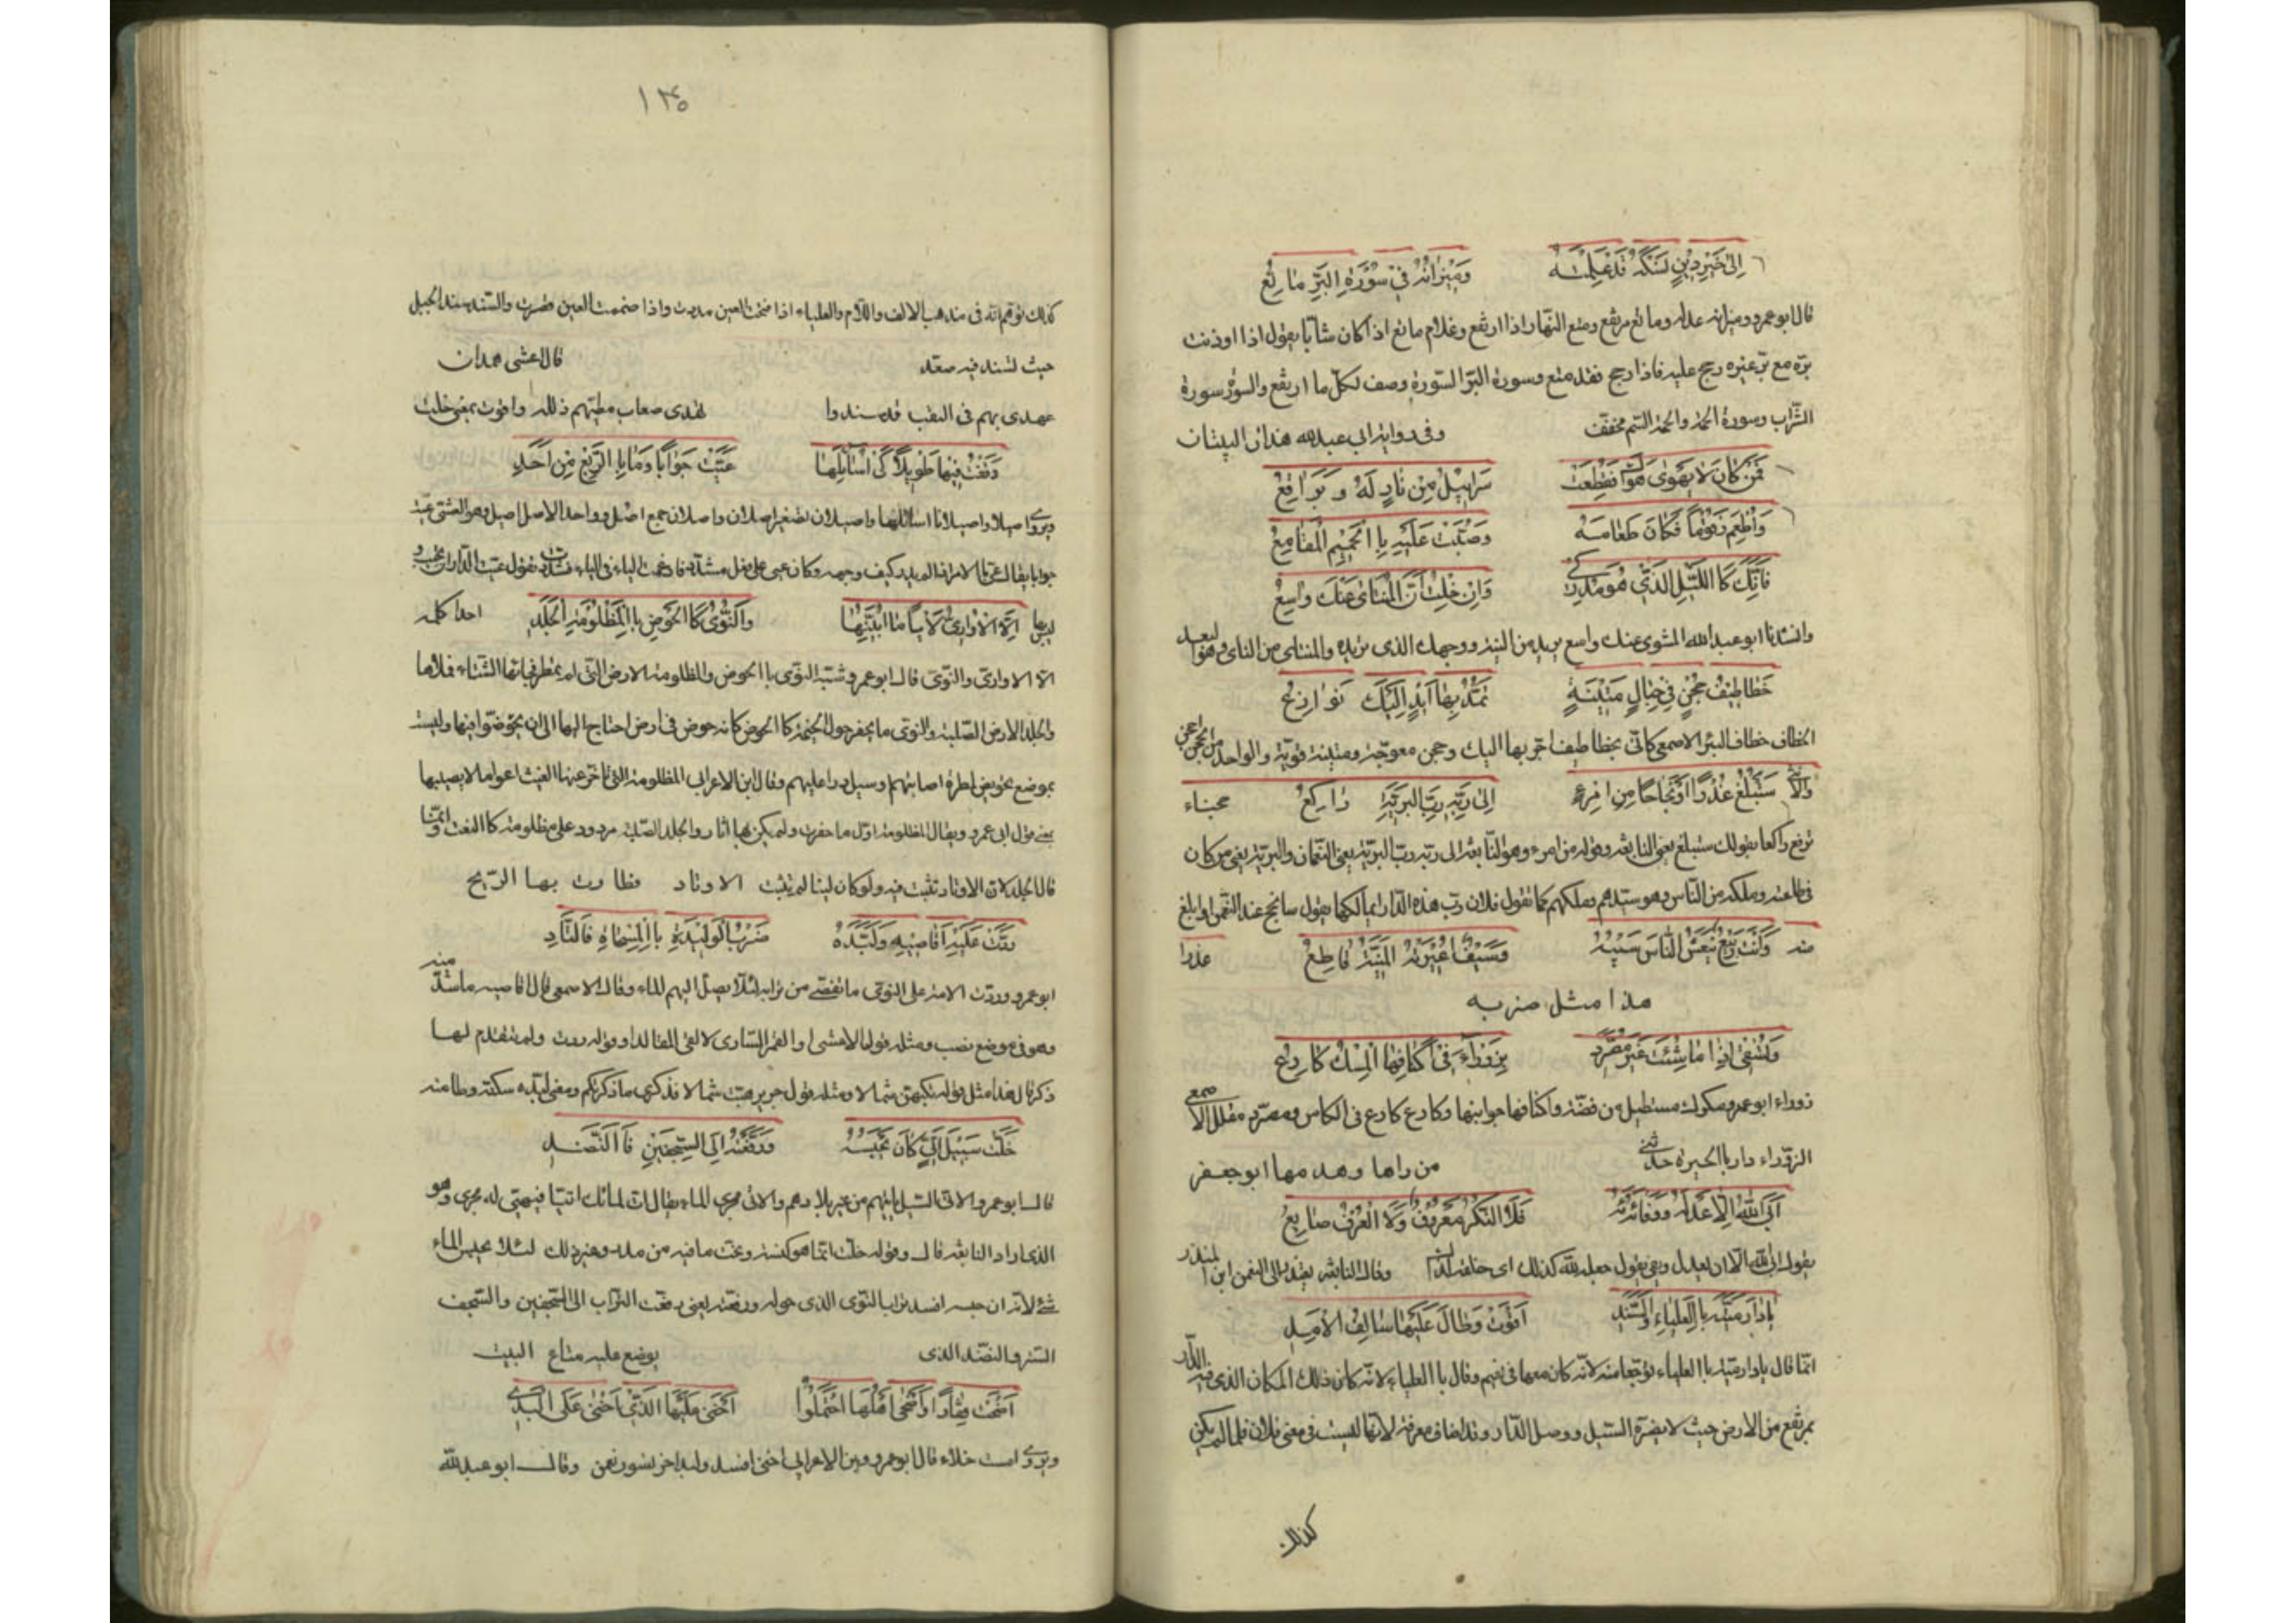 إلى خير دين نسكه قد علمته وميزانه في سورة البر ماتع
قال ابو عمرو وميزانه عدله وماتع مرتفع ومتع النهار اذا ارتفع وغلام ماتع اذا كان شابا يقول اذا اوزنت
بره مع بر غيره رجح عليه فاذا رجح فقد متع وسورة البر السورة وصف لكل ما ارتفع والسورة سورة
الشراب وسورة الحمة والحمة السم مخفف وفى رواية ابى عبدالله هذان البيتان
فمن كان لا يهوى هواك فقطعت سرابيل من نار له وبراقع
واطعم زقوما فكان طعامه وصبت عليه با الحميم المقامع
فانك كا الليل الذي هو مدركي وان خلت ان المنتاى عنك واسع
وانشدنا ابو عبدالله المنتوى عنك واسع يريد من النية ووجهك الذى تريده والمنتاى من الناى وهو البعد
خطاطيف حجن في حبال متينة تمد بها ايد اليك نوازع
الخطاف خطاف البئر الاصمعى كانى بخطاطيف اجر بها اليك وحجن معوجة ومتينة قوية والواحد من الحجن احجن
والانثى سيبلغ عذرا او نجاحا من امرء الى ربه رب البرية راكع حجناء
ترفع راكعا بقولك سيبلغ يعنى النابغه وقوله من امرء وهو النابغه الى ربه رب البرية يعنى النعمان والبرية يعنى من كان
فى طاعته وملكه من الناس وهو سيدهم وملكهم كما تقول فلان رب هذه الدار اى مالكها يقول سانجح عند النعمن او ابلغ
منه وانت ربيع ينعش الناس سيبه وسيف اعيرته المنية قاطع عذرا
هذا مثل ضربه
وتسقى اذا ما شئت غير مصرد بزوراء في اكنافها المسك كارع
زوراء ابو عمرو مكوك مستطيل من فضة واكنافها جوانبها وكارع كارع فى الكاس ومصرد مقلل الاصمعى
الزوراء دار با الحيره حدثنى من راها وهدمها ابو جعفر
ابى الله الا عدله ووفائه فلا النكر معروف ولا العرف ضايع
يقول ابى الله الا ان يعدل ويفى يقول جعله الله كذلك اى خلقه وقال النابغه يعتذر الى النعمن ابن المنذر
يا دار مية با العلياء والسند اقوت وطال عليها سالف الامد
انما قال يا دار مية با العلياء توجعا منه لانه كان معها فى نعيم وقال با العلياء لانه كان ذلك المكان الذى فيه الدار
بمرتفع من الارض حيث لا يضره السيل ووصل الدار وقد اضاف معرفة لانها ليست فى معنى فلان فلما لم يكن
كذلك
١٣٥
كذلك توهم انه فى مذهب الالف واللام والعلياء اذا فتحت العين مددت واذا ضممت العين قصرت والسند سند الجبل
حيث تسند فيه صعد قال اعشى همدان
عهدى بهم فى النقب قد سندوا تهدى صعاب مطيهم ذلله واقوت بمعنى خلت
وقفت فيها طويلا كى اسائلها عيت جوابا وما با الربع من احد
ويروى اصيلا واصيلانا اسائلها واصيلان تصغير اصلان واصلان جمع اصل وواحد الاصل اصيل وهو العشى عيت
جوابا يقال عى با الامر اذا لم يدر كيف وجهه وكان عيى على فعل مشدد فادغمت الياء فى الياء فشددت تقول عيت الدار ان تجيب و
ليس بها الا الاوارى لايا ما ابينها والنؤى كا الحوض با المظلومة الجلد احدا كلمه
الا الاوارى والنؤى قال ابو عمرو شبه النؤى با الحوض والمظلومة الارض التى لم تمطر فجائها الشتاء فملاها
والجلد الارض الصلبة والنؤى ما يحفر حول الخيمة كا الحوض كانه حوض فى ارض احتاج اليها الى ان يحوضوا فيها وليست
بموضع تحويض لمطرة اصابتهم وسيل ورد عليهم وقال ابن الاعرابى المظلومة التى تاخر عنها الغيث اعواما لا يصيبها
بمعنى قول ابى عمرو ويقال المظلومة اول ما حفرت ولم يكن بها اثار والجلد الصلب مردود على مظلومة كا النعت وانما
قال الجلد لان الاوتاد تثبت فيه ولو كان لينا لم يثبت الاوتاد وطارت بها الريح
ردت عليه اقاصيه ولبده ضرب الوليدة با المسحاة فى الثاد
ابو عمرو وردت الامة على النؤى ما تقصى من ترابه لئلا يصل اليهم الماء وقال الاصمعى قال اقاصيه ما شذ منه
وهو فى موضع نصب ومثله قول الاعشى او القمر السارى لالقى المقالدا وقوله ردت ولم يتقدم لها
ذكر قال هذا مثل قوله ومثله قول جرير هبت شمالا فذكرى ما ذكرتكم ومعنى لبده سكنه وطامنه
خلت سبيل اتى كان يحبسه ورفعته الى السجفين فا النضد
قال ابو عمرو والاتى السيل ياتيهم من غير بلادهم والاتى مجرى الماء يقال ات لمائك اتيا فيهيئ له مجرى وهو
الذى اراد النابغه قال وقوله خلت انما هو كنسته ونحت ما فيه من مدر وغير ذلك لئلا يحبس الماء
شئ لانه ان حبسه افسد تراب النؤى الذى حوله ورفعته يعنى رفعت التراب الى السجفين والسجف
الستر والنضد الذى يوضع عليه متاع البيت
اضحت قفارا واضحى اهلها احتملوا اخنى عليها الذي اخنى على لبد
ويروى امست خلاء قال ابو عمرو وبن الاعرابى اخنى افسد ولبد اخر نسور لقمن وقال ابو عبدالله